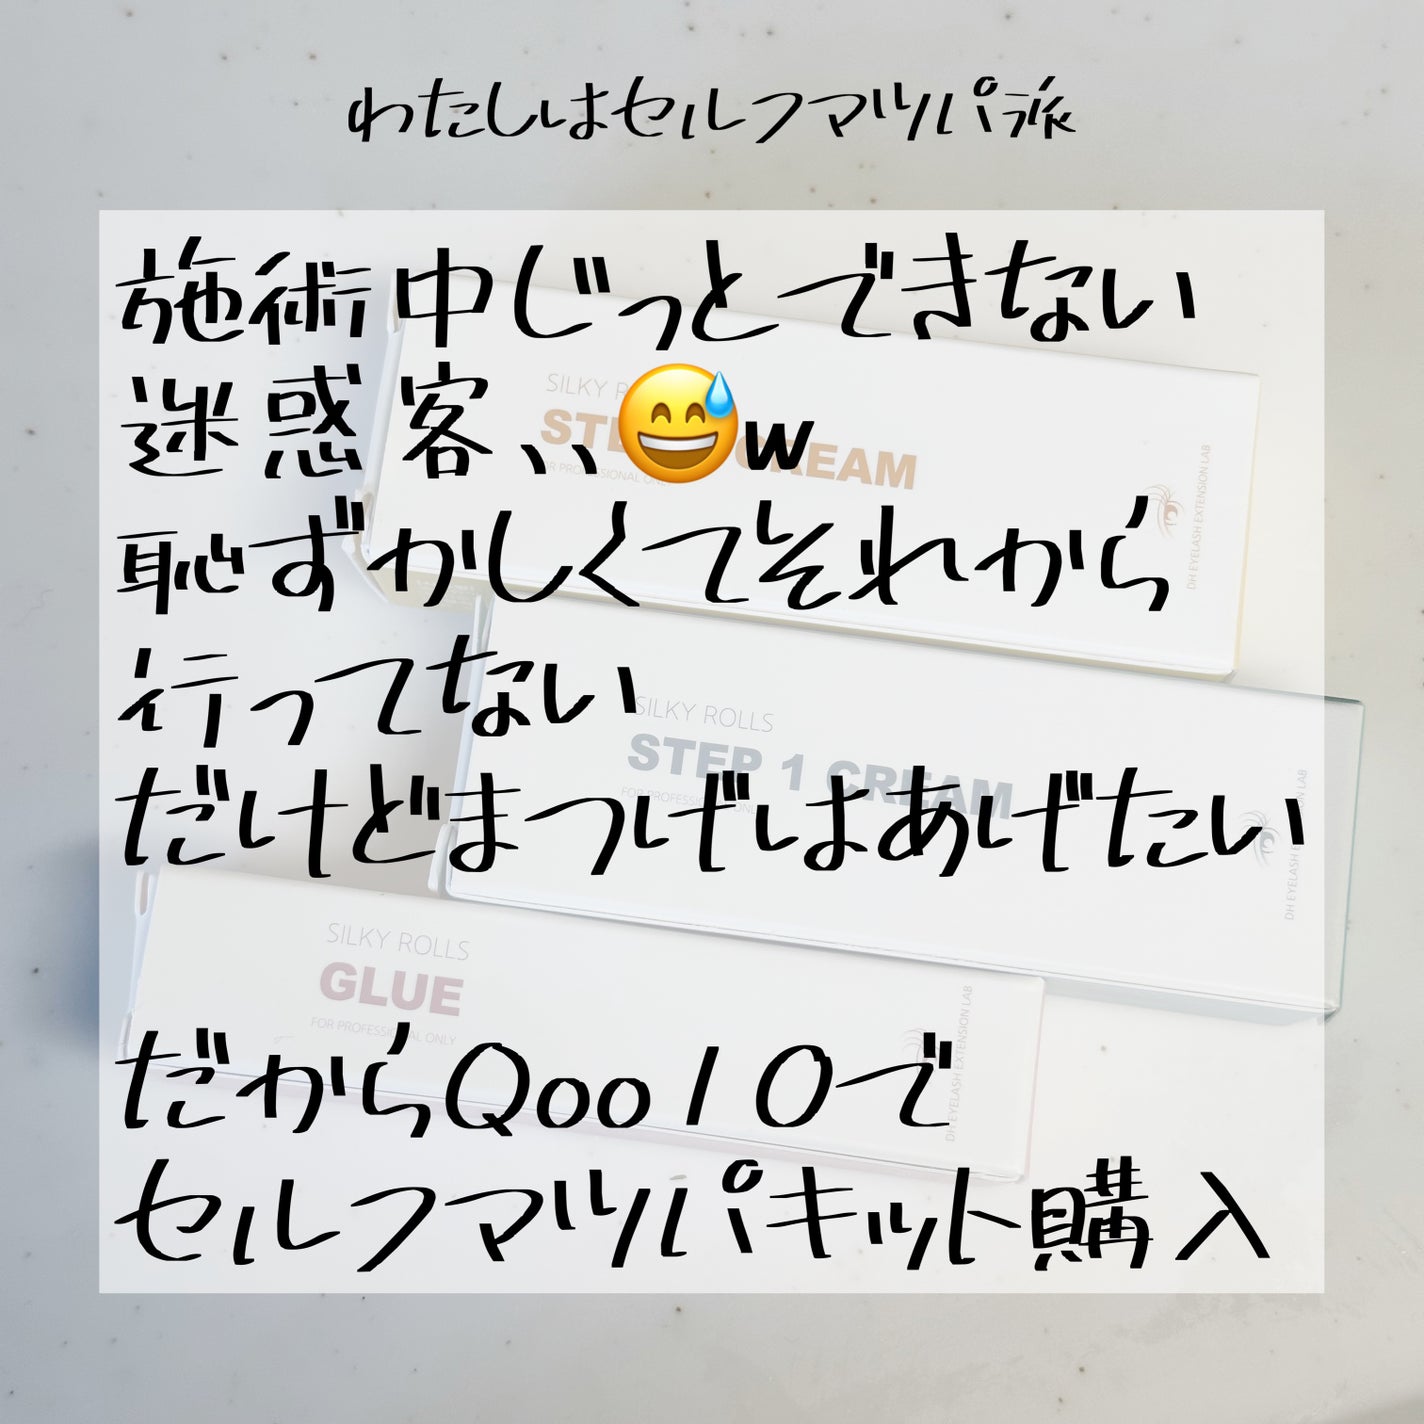 わたしはセルフマツパ派
施術中じっとできない
迷惑客､､､😅w
恥ずかしくてそれから
行ってない
だけどまつげはあげたい
だからQoo10で
セルフマツパキット購入
SILKY
CREAM
DH EYELASH EXTENSION LAB
SILKY ROLLS
STEP 1 CREAM
FOR PROFESSIONAL ONLY
SILKY ROLLS
GLUE
FOR PROFESSIONAL ONLY
DH EYELASH EXTENSION LAB